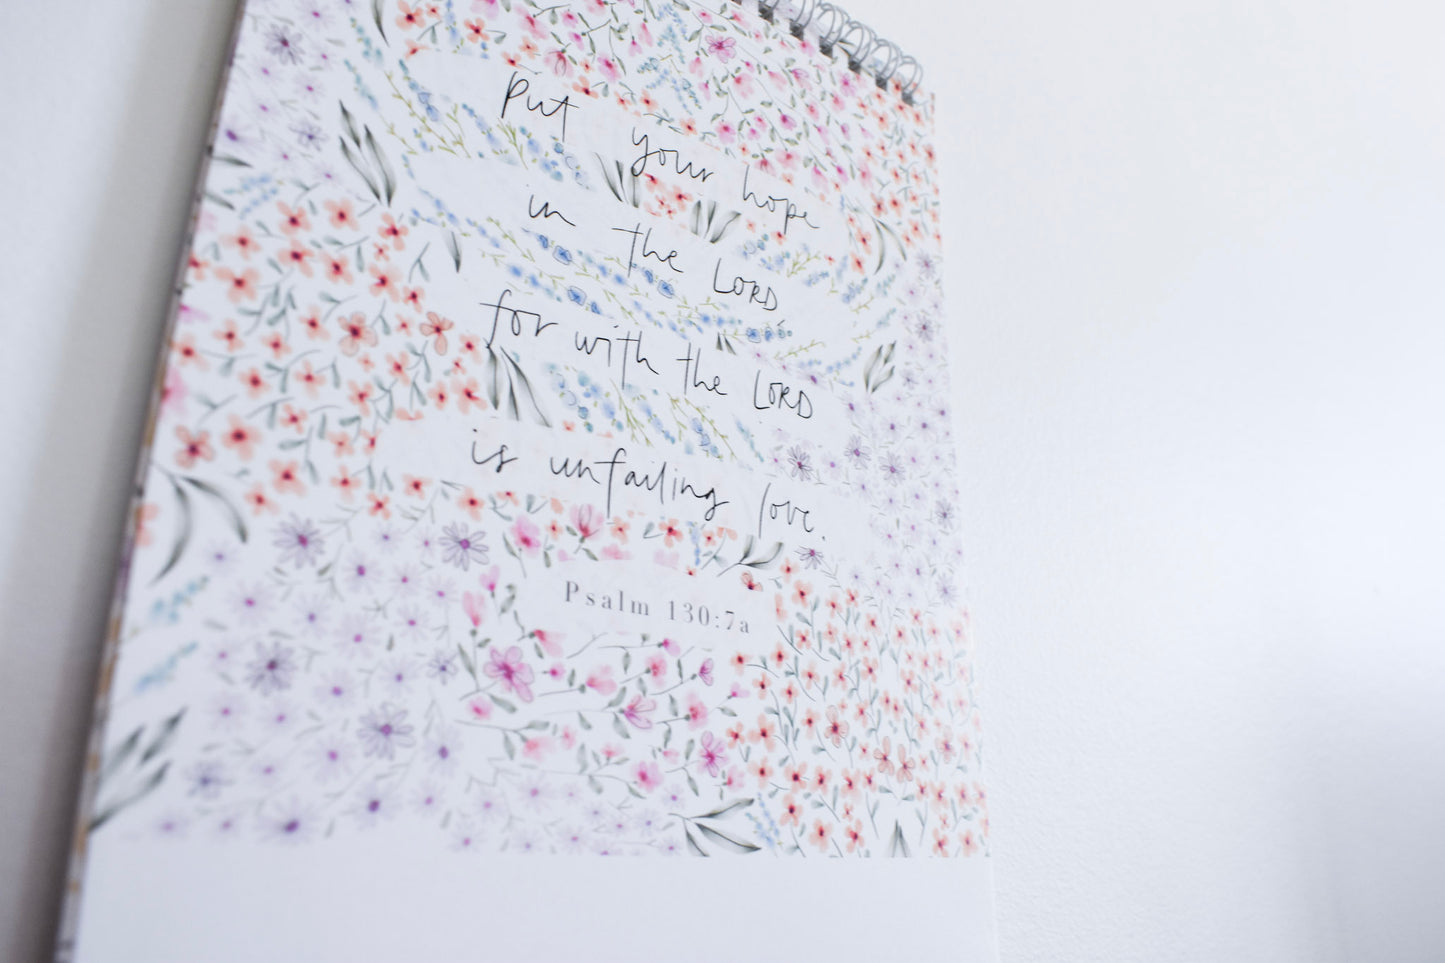 Put your hope
in the LORD
for with the LORD
is unfailing love.
Psalm 130:7a